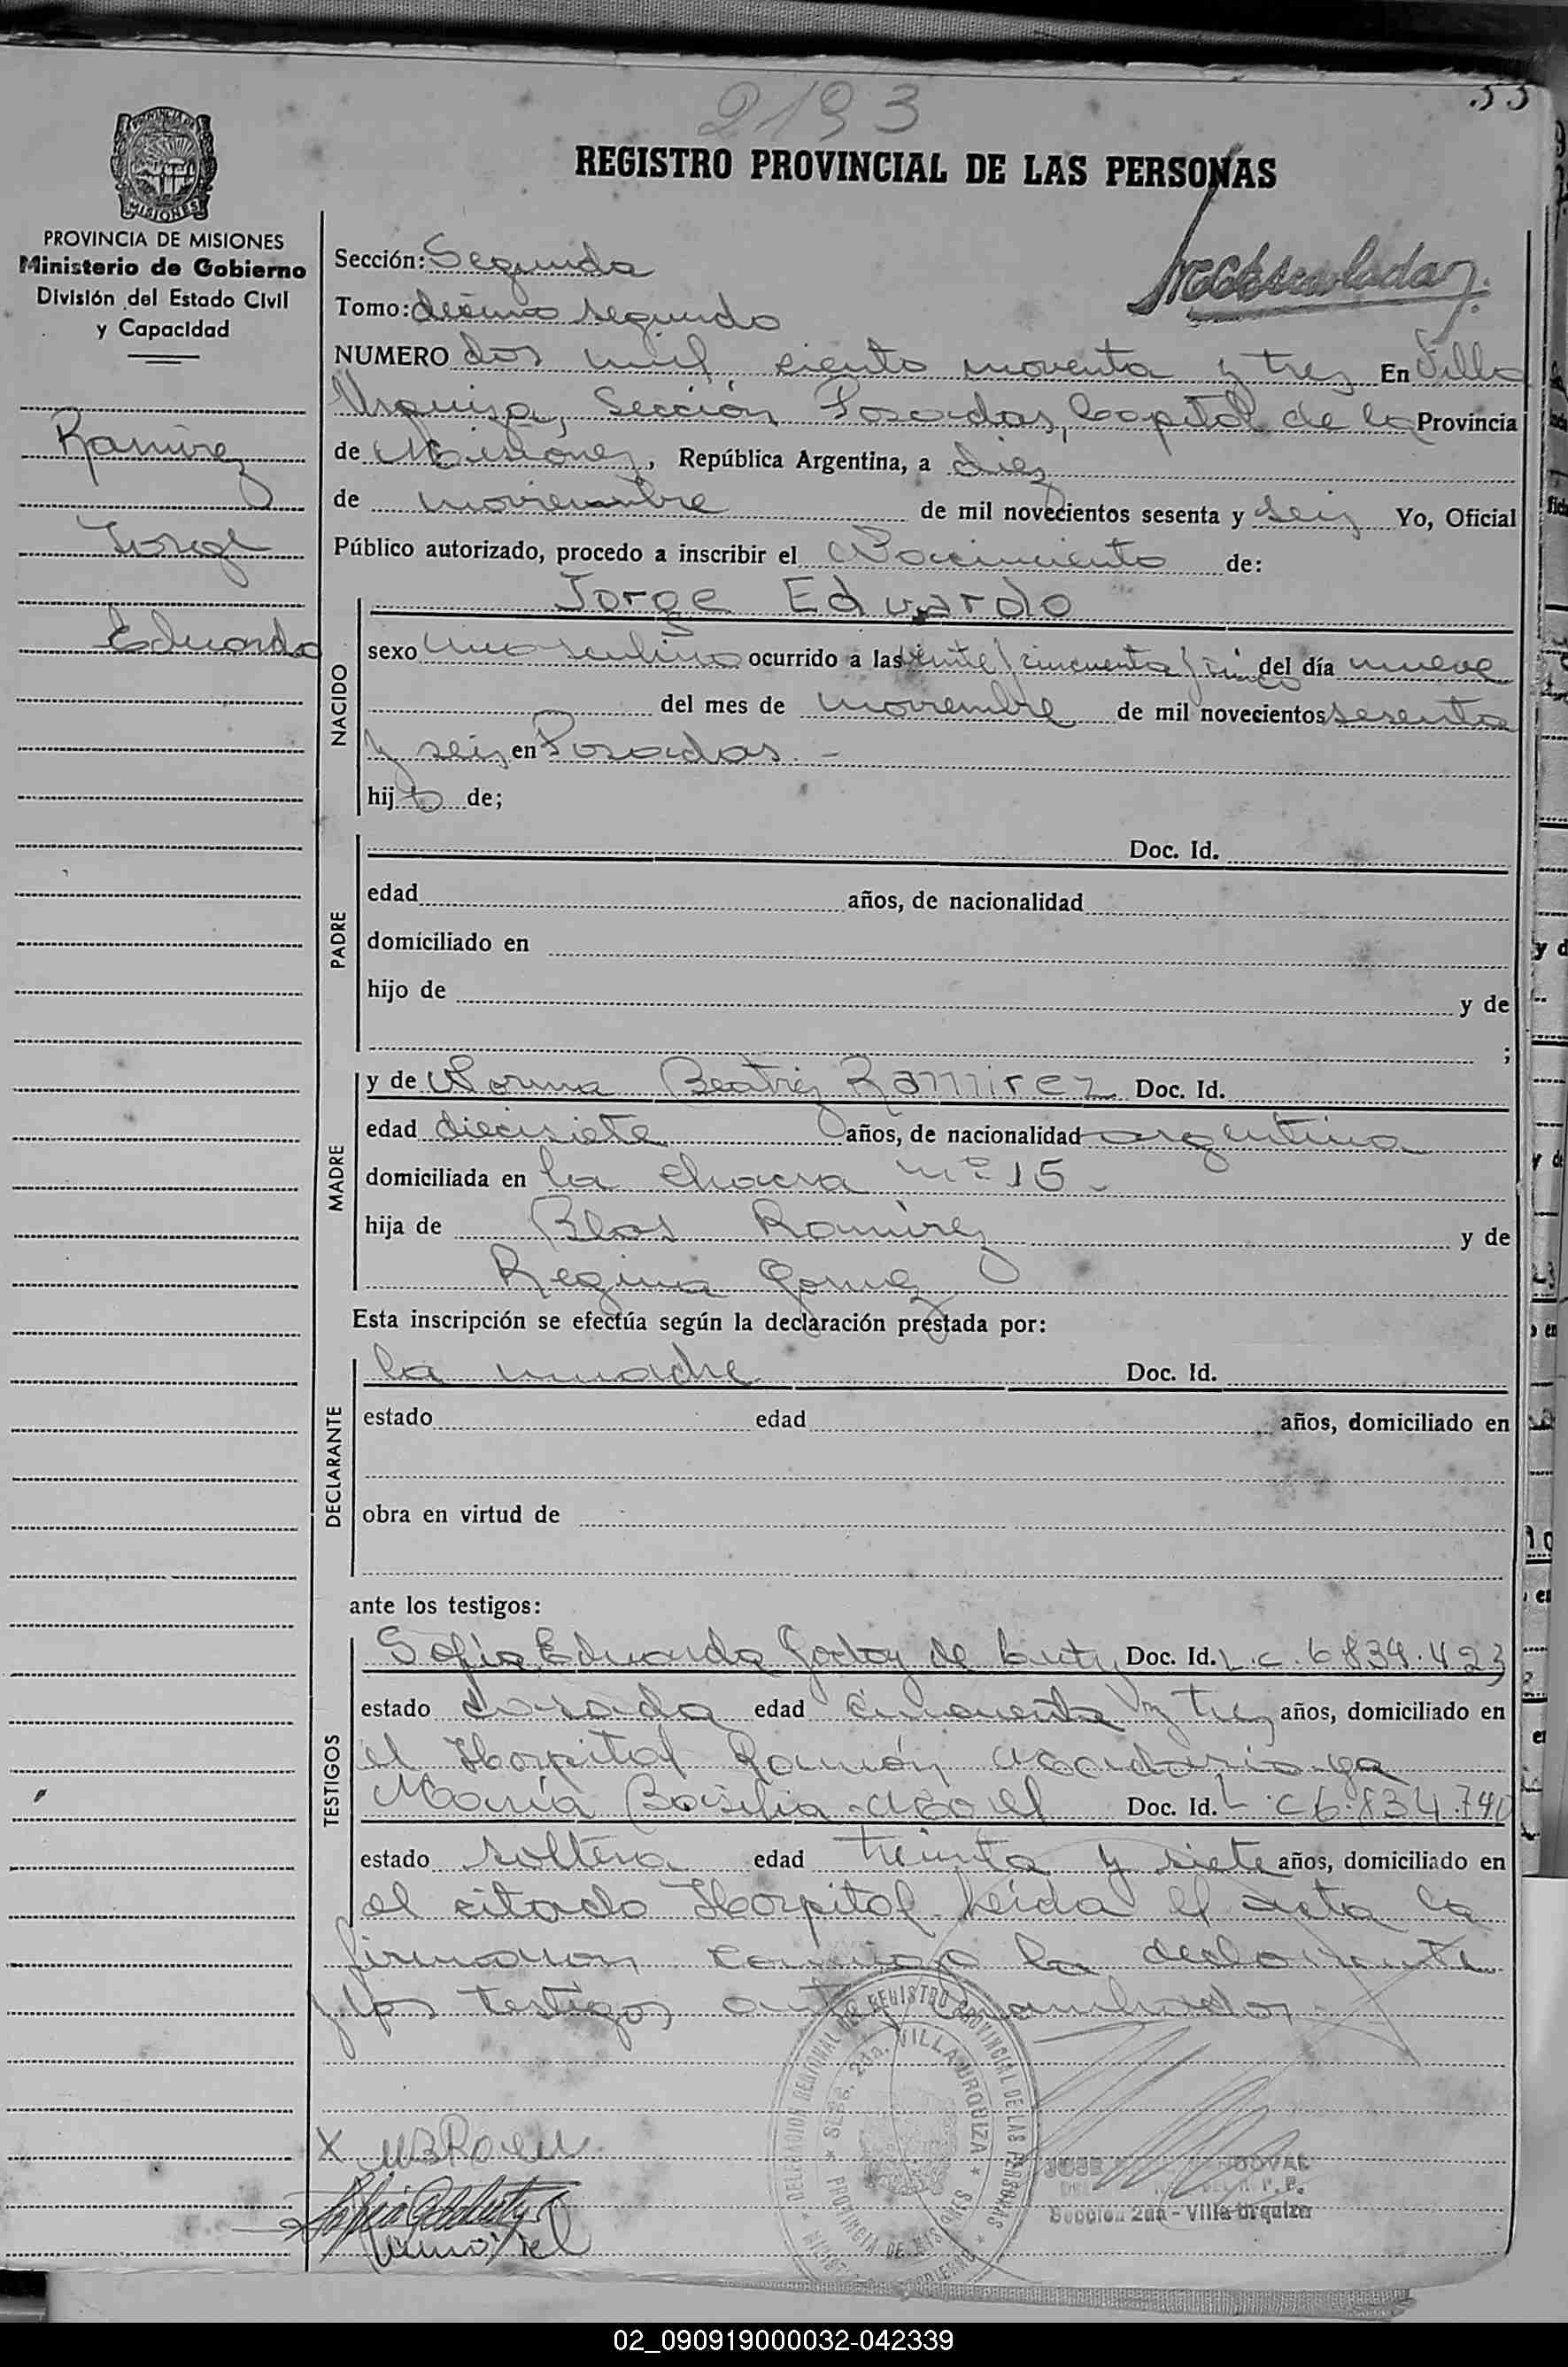 2193
53
REGISTRO PROVINCIAL DE LAS PERSONAS
PROVINCIA DE MISIONES
Ministerio de Gobierno
División del Estado Civil
y Capacidad
Ramirez
Jorge
Eduardo
Sección: Segunda
Tomo: décimo segundo
NUMERO dos mil ciento noventa y tres En Villa
Urquiza, Sección Posadas, Capital de la Provincia
de Misiones, República Argentina, a diez
de noviembre de mil novecientos sesenta y seis Yo, Oficial
Público autorizado, procedo a inscribir el Nacimiento de:
NACIDO
Jorge Eduardo
sexo masculino ocurrido a las veinte/cincuenta/cinco del día nueve
del mes de noviembre de mil novecientos sesenta
y seis en Posadas. -
hijo de;
PADRE
Doc. Id.
edad años, de nacionalidad
domiciliado en
hijo de y de
;
MADRE
y de Norma Beatriz Ramirez Doc. Id.
edad diecisiete años, de nacionalidad argentina
domiciliada en la chacra nº 15 -
hija de Blas Ramirez y de
Regina Gomez
Esta inscripción se efectúa según la declaración prestada por:
DECLARANTE
la madre Doc. Id.
estado edad años, domiciliado en
obra en virtud de
ante los testigos:
TESTIGOS
Sofia Eduarda Godoy de Doc. Id. L.C. 6834.423
estado casada edad cincuenta y tres años, domiciliado en
el Hospital Ramón Madariaga
María Basilia Doc. Id. L.C 6.834.740
estado soltera edad treinta y siete años, domiciliado en
el citado Hospital. Leida el acta la
firmaron conmigo la declarante
y los testigos
DELEGACION REGIONAL DEL REGISTRO PROVINCIAL DE LAS PERSONAS
Secc. 2da. VILLA URQUIZA
PROVINCIA DE MISIONES
JOSE
Sección 2da - Villa Urquiza
02_090919000032-042339